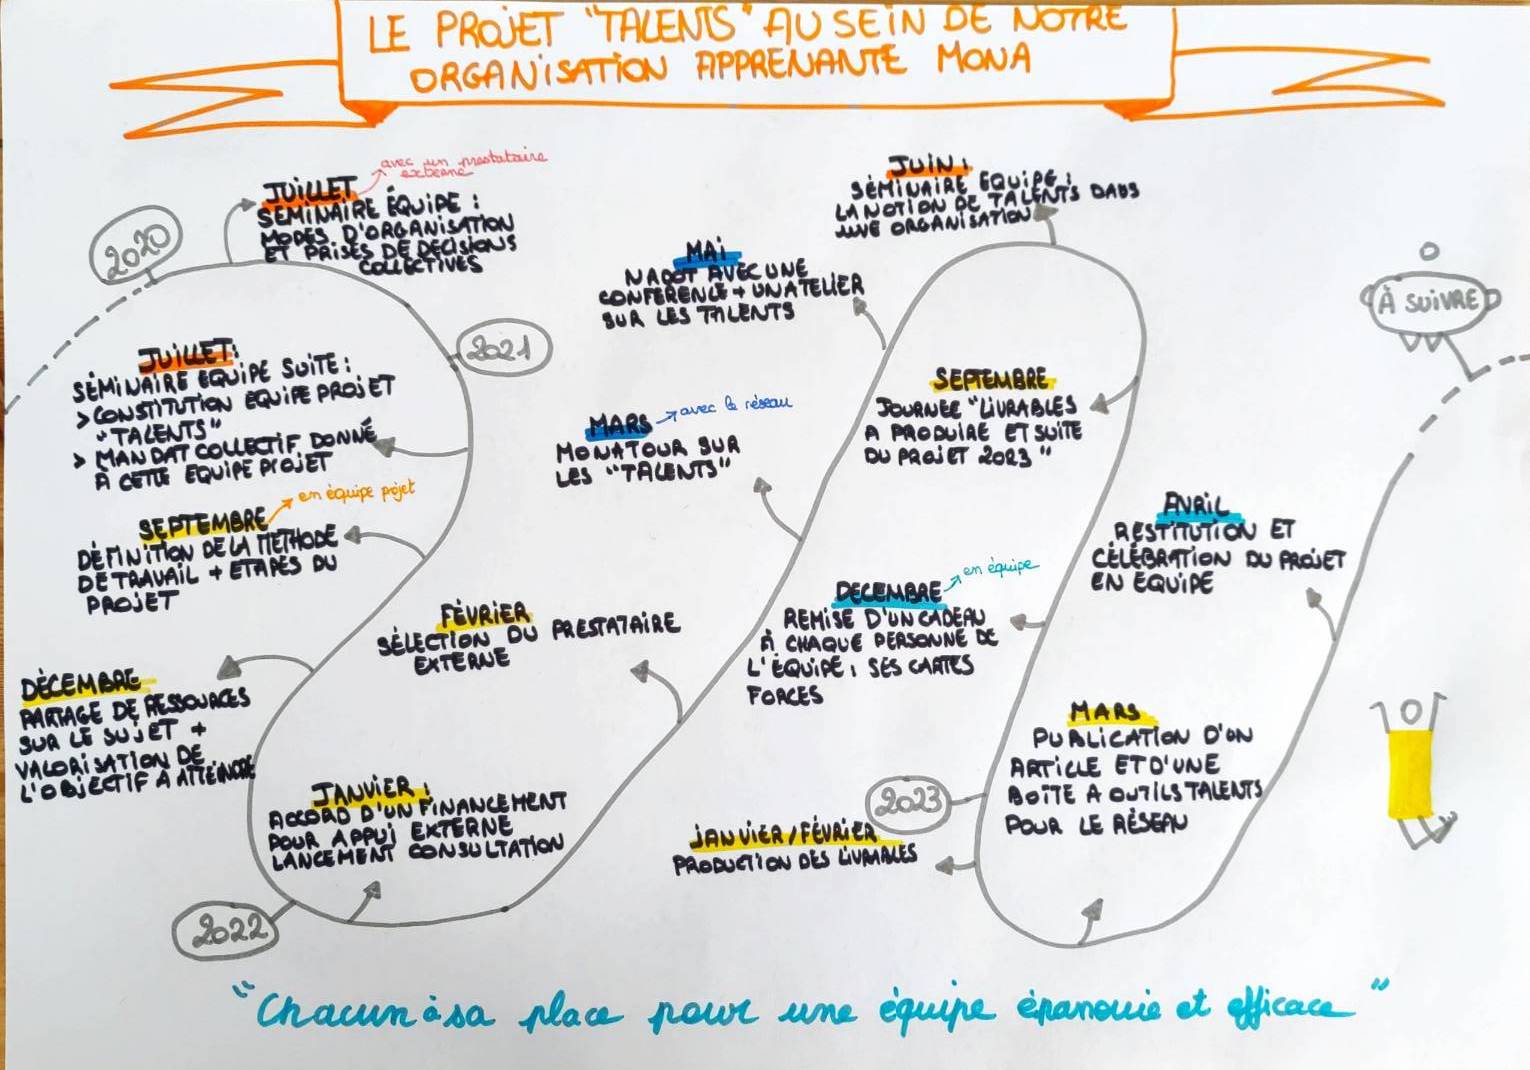 LE PROJET "TALENTS" AU SEIN DE NOTRE
ORGANISATION APPRENANTE MONA
2020
JUILLET
avec un prestataire
externe
SÉMINAIRE ÉQUIPE :
MODES D'ORGANISATION
ET PRISES DE DECISIONS
COLLECTIVES
2021
JUILLET:
SÉMINAIRE EQUIPE SUITE :
> CONSTITUTION EQUIPE PROJET
"TALENTS"
> MANDAT COLLECTIF DONNÉ
À CETTE EQUIPE PROJET
SEPTEMBRE
en équipe projet
DÉFINITION DE LA METHODE
DE TRAVAIL + ETAPES DU
PROJET
DÉCEMBRE
PARTAGE DE RESSOURCES
SUR LE SUJET +
VALORISATION DE
L'OBJECTIF À ATTEINDRE
2022
JANVIER :
ACCORD D'UN FINANCEMENT
POUR APPUI EXTERNE
LANCEMENT CONSULTATION
FÉVRIER
SÉLECTION DU PRESTATAIRE
EXTERNE
MARS
avec le réseau
MONATOUR SUR
LES "TALENTS"
MAI
AVEC UNE
CONFERENCE + UN ATELIER
SUR LES TALENTS
JUIN :
SÉMINAIRE EQUIPE :
LA NOTION DE TALENTS DANS
UNE ORGANISATION
SEPTEMBRE
JOURNEE "LIVRABLES
A PRODUIRE ET SUITE
DU PROJET 2023"
DECEMBRE
en équipe
REMISE D'UN CADEAU
À CHAQUE PERSONNE DE
L'ÉQUIPE : SES CARTES
FORCES
2023
JANVIER/FÉVRIER
PRODUCTION DES LIVRABLES
MARS
PUBLICATION D'UN
ARTICLE ET D'UNE
BOÎTE A OUTILS TALENTS
POUR LE RÉSEAU
AVRIL
RESTITUTION ET
CÉLÉBRATION DU PROJET
EN ÉQUIPE
À SUIVRE
"Chacun à sa place pour une équipe épanouie et efficace"